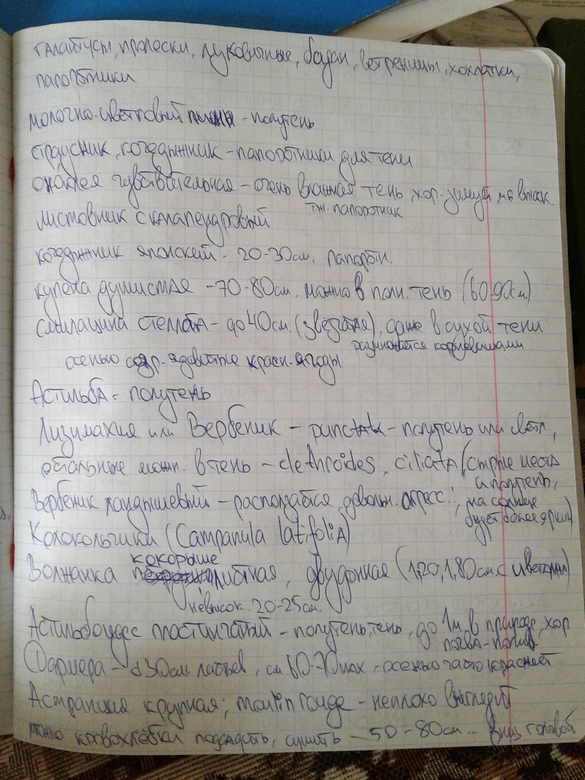 галантусы, пролески, луковичные, бадан, ветреницы, хохлатки,
папоротники
молочно-цветковый пион - полутень
страусник, кочедыжник - папоротники для тени
оноклея чувствительная - очень влажная тень хор. зимует не высок.
тж. папоротник
листовник сколапендровый
кочедыжник японский - 20-30см. папоротн.
купена душистая - 70-80см. можно в полн. тень (60-90см)
смилацина стеллата - до 40см. (звезд), даже в сухой тени
размножается корневищами
осенью ядовитые красн. ягоды
Астильба - полутень
Лизимахия или Вербейник - punctata - полутень или светл.,
остальные можн. в тень - clethroides, ciliata (сырые места
и полутень,
Вербейник ландышевый - расползается довольн. агресс.!, на солнце
будет более ярким)
Колокольчики (Campanula latifolia)
Волжанка кокорыше листная, двудомная (1,20, 1,80см с цветами)
невысок. 20-25см.
Астильбоидес пластинчатый - полутень, тень, до 1м. в природе, хор
почва - полив
Дармера - d 30см. листьев, см 60-70 max - осенью часто краснеет
Астранция крупная, moulin rouge - неплохо выглядит
можно кровохлебки подсадить, сушить - 50-80см... вниз головой